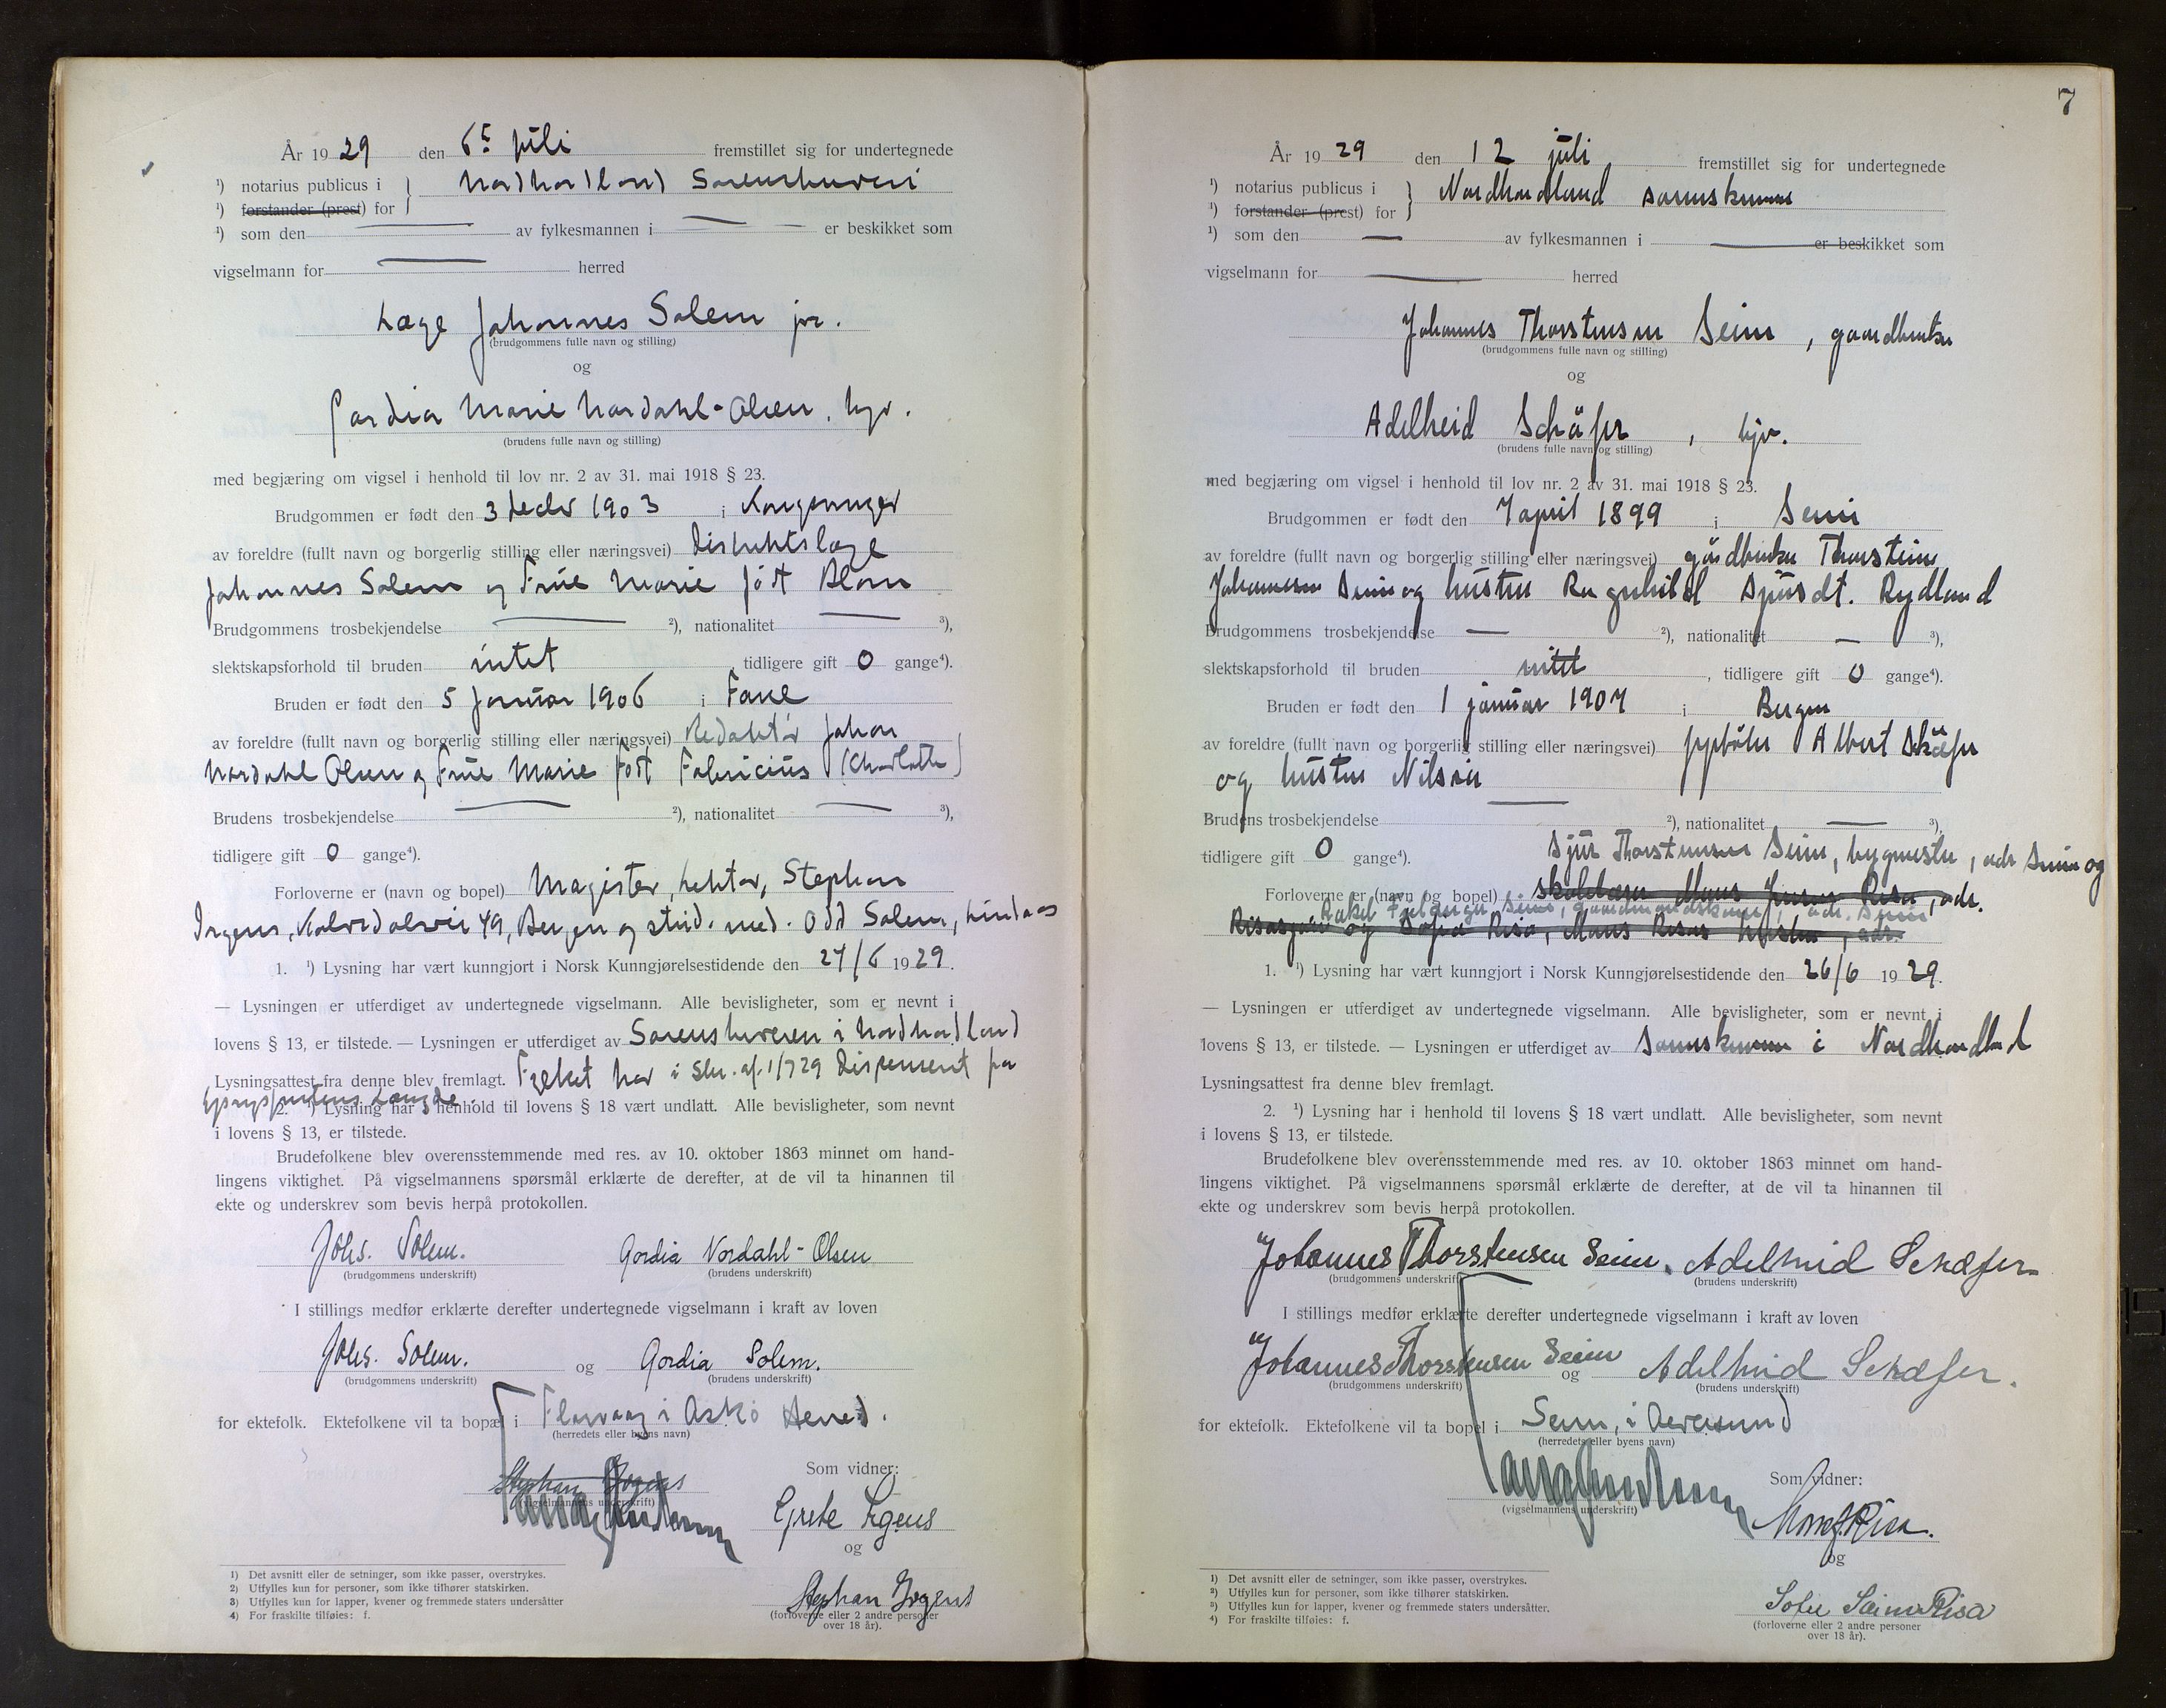 År 1929 den 6te juli fremstillet sig for undertegnede
¹) notarius publicus i } Nordhordland Sorenskriveri
¹) forstander (prest) for
¹) som den av fylkesmannen i er beskikket som
vigselmann for herred
Læge Johannes Solem jr.
(brudgommens fulle navn og stilling)
og
Gordia Marie Nordahl-Olsen, hjv.
(brudens fulle navn og stilling)
med begjæring om vigsel i henhold til lov nr. 2 av 31. mai 1918 § 23.
Brudgommen er født den 3 decbr 1903 i Kongsvinger
av foreldre (fullt navn og borgerlig stilling eller næringsvei) Distriktslæge
Johannes Solem og Frue Marie født Blom
Brudgommens trosbekjendelse ²), nationalitet ³),
slektskapsforhold til bruden intet, tidligere gift 0 gange⁴).
Bruden er født den 5 januar 1906 i Fane
av foreldre (fullt navn og borgerlig stilling eller næringsvei) Redaktør Johan
Nordahl Olsen og Frue Marie født Fabricius (Charlotte)
Brudens trosbekjendelse ²), nationalitet ³),
tidligere gift 0 gange⁴).
Forloverne er (navn og bopel) Magister, lektor, Stephan
Irgens, Kalvedalsvei 49, Bergen og stud. med. Odd Solem, Lindaas
1. ¹) Lysning har vært kunngjort i Norsk Kunngjørelsestidende den 27/6 1929.
— Lysningen er utferdiget av undertegnede vigselmann. Alle bevisligheter, som er nevnt i
lovens § 13, er tilstede. — Lysningen er utferdiget av Sorenskriveren i Nordhordland
Lysningsattest fra denne blev fremlagt. Fylket har i Skr. af 1/7 29 dispensert fra
lysningsfristens Længde.
2. ¹) Lysning har i henhold til lovens § 18 vært undlatt. Alle bevisligheter, som nevnt
i lovens § 13, er tilstede.
Brudefolkene blev overensstemmende med res. av 10. oktober 1863 minnet om hand-
lingens viktighet. På vigselmannens spørsmål erklærte de derefter, at de vil ta hinannen til
ekte og underskrev som bevis herpå protokollen.
Johs. Solem. Gordia Nordahl-Olsen
(brudgommens underskrift) (brudens underskrift)
I stillings medfør erklærte derefter undertegnede vigselmann i kraft av loven
Johs. Solem. og Gordia Solem.
(brudgommens underskrift) (brudens underskrift)
for ektefolk. Ektefolkene vil ta bopæl i Florvaag i Askø Herred.
(herredets eller byens navn)
Stephan Irgens Som vidner:
(vigselmannens underskrift) Grete Irgens
og
Stephan Irgens
(forloverne eller 2 andre personer
over 18 år).
1) Det avsnitt eller de setninger, som ikke passer, overstrykes.
2) Utfylles kun for personer, som ikke tilhører statskirken.
3) Utfylles kun for lapper, kvener og fremmede staters undersåtter
4) For fraskilte tilføies: f.
7
År 1929 den 12 juli fremstillet sig for undertegnede
¹) notarius publicus i } Nordhordland
¹) forstander (prest) for
¹) som den av fylkesmannen i er beskikket som
vigselmann for herred
Johannes Thorstensen Seim, gaardbruker
(brudgommens fulle navn og stilling)
og
Adelheid Schäfer, hjv.
(brudens fulle navn og stilling)
med begjæring om vigsel i henhold til lov nr. 2 av 31. mai 1918 § 23.
Brudgommen er født den 7 april 1899 i Seim
av foreldre (fullt navn og borgerlig stilling eller næringsvei) gårdbruker Thorstein
Johannessen Seim og hustru Ragnhild Sjursdt. Rydland
Brudgommens trosbekjendelse ²), nationalitet ³),
slektskapsforhold til bruden intet, tidligere gift 0 gange⁴).
Bruden er født den 1 januar 1907 i Bergen
av foreldre (fullt navn og borgerlig stilling eller næringsvei) fyrbøter Albert Schäfer
og hustru Nilsia
Brudens trosbekjendelse ²), nationalitet ³)
tidligere gift 0 gange⁴). Sjur Thorstensen Seim, bygmester, adr Seim og
Forloverne er (navn og bopel) skolelærer Mons Risa, adr.
Rakel Seim, adr. Seim
Risasjøen og Sofie Risa, Mons Risas hustru, adr.
1. ¹) Lysning har vært kunngjort i Norsk Kunngjørelsestidende den 26/6 1929.
— Lysningen er utferdiget av undertegnede vigselmann. Alle bevisligheter, som er nevnt i
lovens § 13, er tilstede. — Lysningen er utferdiget av Sorenskriveren i Nordhordland
Lysningsattest fra denne blev fremlagt.
2. ¹) Lysning har i henhold til lovens § 18 vært undlatt. Alle bevisligheter, som nevnt
i lovens § 13, er tilstede.
Brudefolkene blev overensstemmende med res. av 10. oktober 1863 minnet om hand-
lingens viktighet. På vigselmannens spørsmål erklærte de derefter, at de vil ta hinannen til
ekte og underskrev som bevis herpå protokollen.
Johannes Thorstensen Seim. Adelheid Schæfer
(brudgommens underskrift) (brudens underskrift)
I stillings medfør erklærte derefter undertegnede vigselmann i kraft av loven
Johannes Thorstensen Seim og Adelheid Schæfer.
(brudgommens underskrift) (brudens underskrift)
for ektefolk. Ektefolkene vil ta bopel i Seim, i Alversund
(herredets eller byens navn)
Som vidner:
(vigselmannens underskrift) Mons J. Risa.
og
Sofie Seim Risa
(forloverne eller 2 andre personer
over 18 år).
1) Det avsnitt eller de setninger, som ikke passer, overstrykes.
2) Utfylles kun for personer, som ikke tilhører statskirken.
3) Utfylles kun for lapper, kvener og fremmede staters undersåtter.
4) For fraskilte tilføies: f.